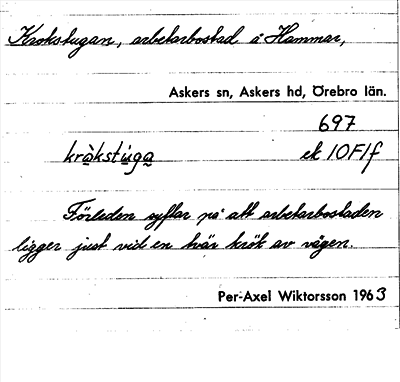 Krokstugan, arbetarbostad å Hammar,
Askers sn, Askers hd, Örebro län.
697
kròkstùga ek 10F1f
Förleden syftar på att arbetarbostaden
ligger just vid en tvär krök av vägen.
Per-Axel Wiktorsson 1963